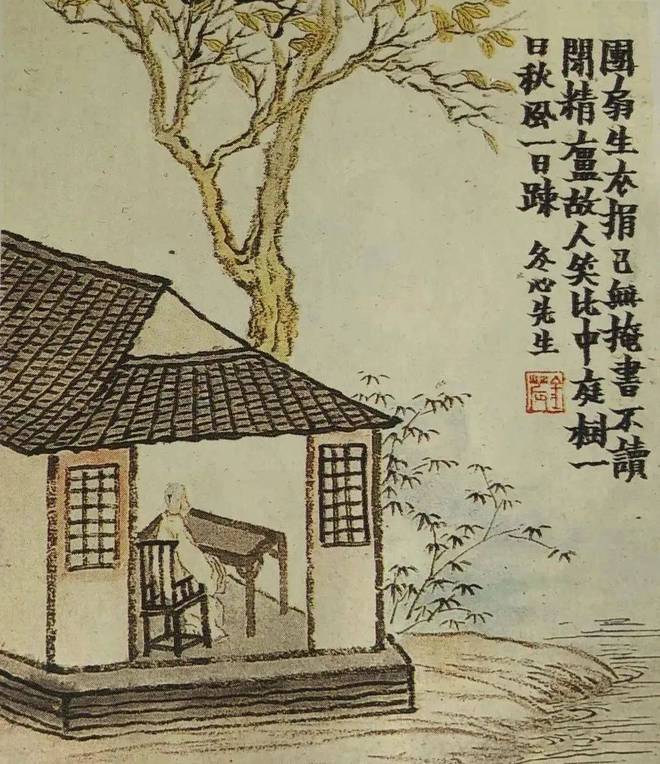 團扇生衣捐已無掩書不讀
閉精廬故人笑比中庭樹一
日秋風一日疎
冬心先生
金農